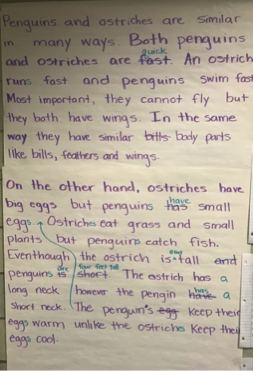 Penguins and ostriches are similar
in many ways. Both penguins
quick
and ostriches are fast. An ostrich
runs fast and penguins swim fast
Most important, they cannot fly but
they both have wings. In the same
way they have similar bills body parts
like bills, feathers and wings.
On the other hand, ostriches have
have
big eggs but penguins has small
eggs. Ostriches eat grass and small
plants but penguins catch fish.
Eventhough the ostrich is tall and
are four feet tall
penguins is short. The ostrich has a
has
long neck however the pengin have a
short neck. The penguin's egg Keep their
eggs warm unlike the ostriches Keep their
eggs cool.